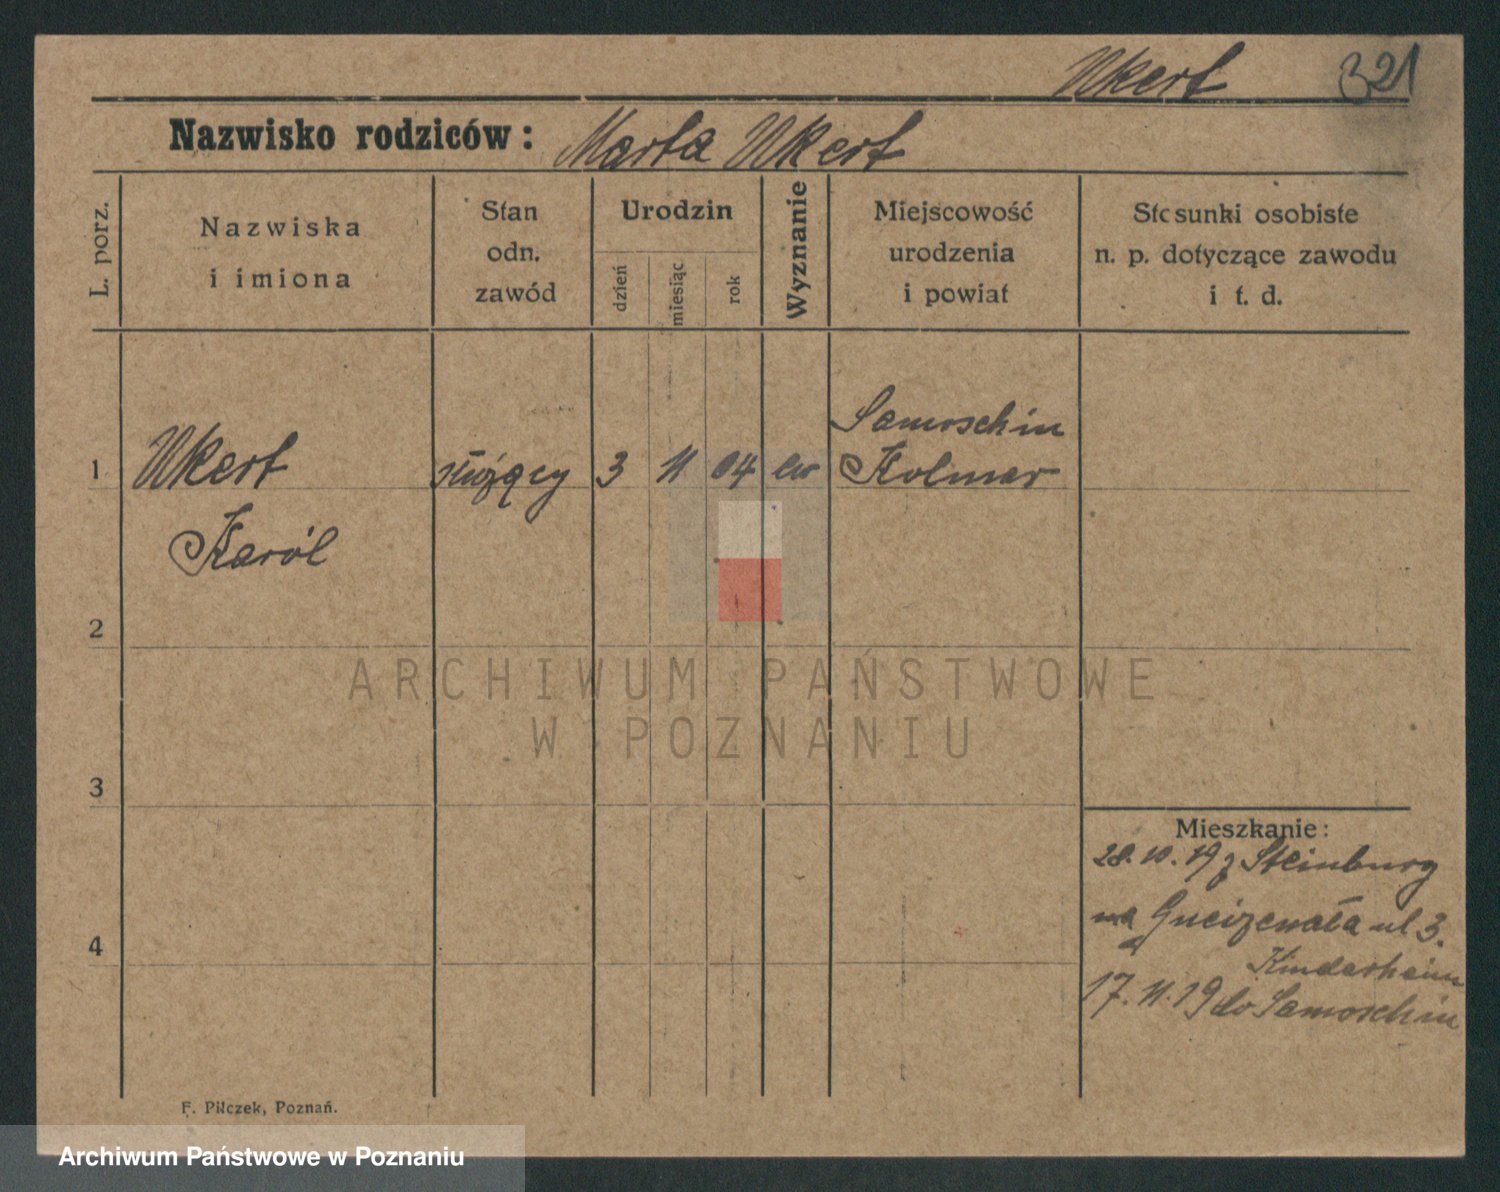 Ukert 321
Nazwisko rodziców: Marta Ukert
L. porz.
Nazwiska
i imiona
Stan
odn.
zawód
Urodzin
dzień
miesiąc
rok
Wyznanie
Miejscowość
urodzenia
i powiat
Stosunki osobiste
n. p. dotyczące zawodu
i t. d.
Samoschin
1 Ukert 3 11 04 ew Kolmar
Karól
2
ARCHIWUM PAŃSTWOWE
W POZNANIU
3
Mieszkanie:
28.10.19 z Steinburg
na Gneizenała ul 3.
4
Kinderheim
17.11.19 do Samoschin
F. Pilczek, Poznań.
Archiwum Państwowe w Poznaniu